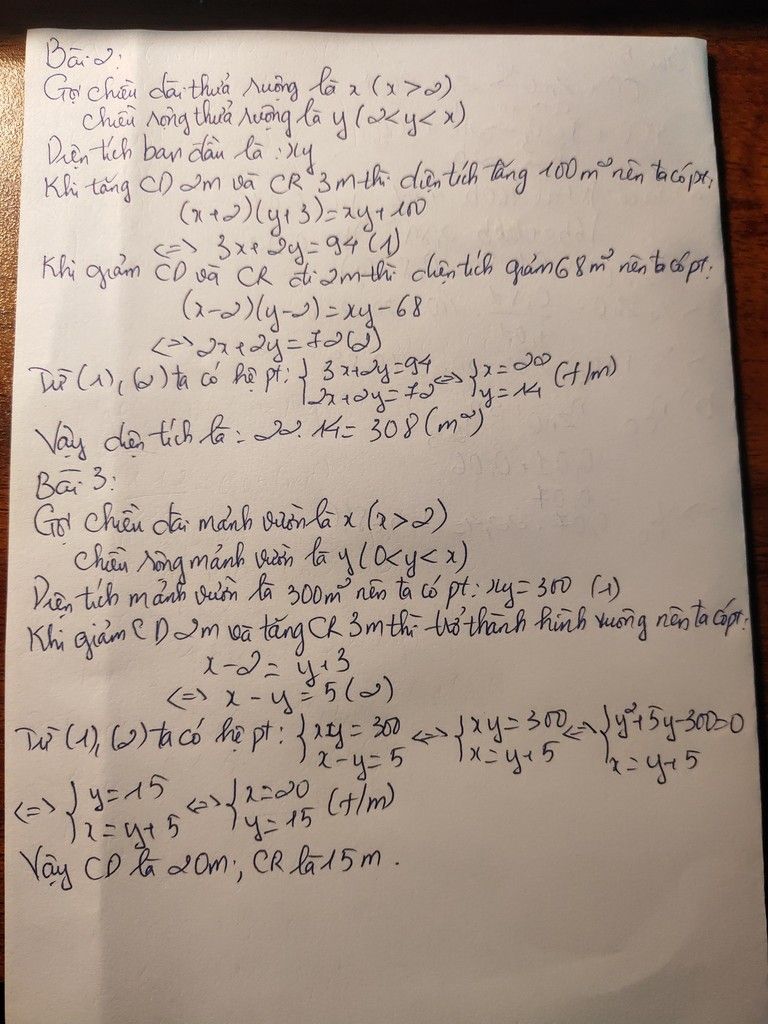 Bài 2:
Gọi chiều dài thửa ruộng là x (x>2)
chiều rộng thửa ruộng là y (2<y<x)
Diện tích ban đầu là: xy
Khi tăng CD 2m và CR 3m thì diện tích tăng 100m² nên ta có pt:
(x+2)(y+3)=xy+100
<=> 3x+2y=94 (1)
Khi giảm CD và CR đi 2m thì diện tích giảm 68m² nên ta có pt:
(x-2)(y-2)=xy-68
<=> 2x+2y=72 (2)
Từ (1), (2) ta có hệ pt: { 3x+2y=94 <=> { x=22 (t/m)
2x+2y=72 y=14
Vậy diện tích là: 22.14=308(m²)
Bài 3:
Gọi chiều dài mảnh vườn là x (x>2)
chiều rộng mảnh vườn là y (0<y<x)
Diện tích mảnh vườn là 300m² nên ta có pt: xy=300 (1)
Khi giảm CD 2m và tăng CR 3m thì trở thành hình vuông nên ta có pt:
x-2=y+3
<=> x-y=5 (2)
Từ (1), (2) ta có hệ pt: { xy=300 <=> { xy=300 <=> { y²+5y-300=0
x-y=5 x=y+5 x=y+5
<=> { y=15 <=> { x=20 (t/m)
x=y+5 y=15
Vậy CD là 20m; CR là 15m.